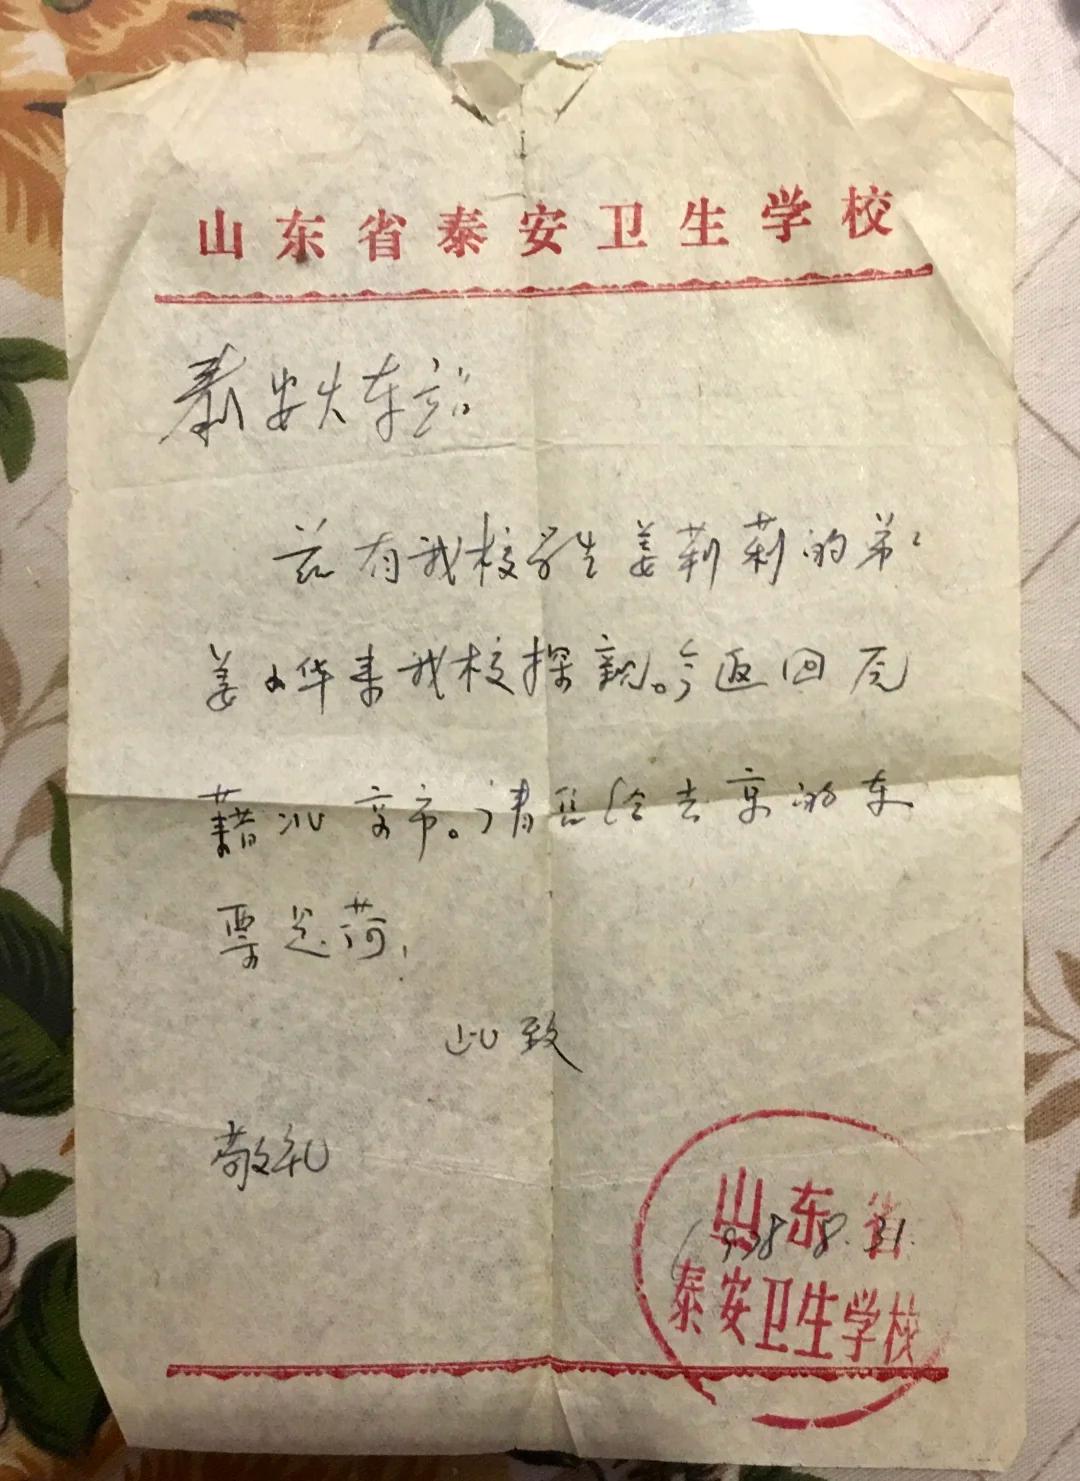 山东省泰安卫生学校
泰安火车站
兹有我校学生姜莉莉的弟弟
姜小华来我校探亲。今返回原
籍北京市。请售给去京的车
票是荷，
此致
敬礼
山东省
8.31.
泰安卫生学校